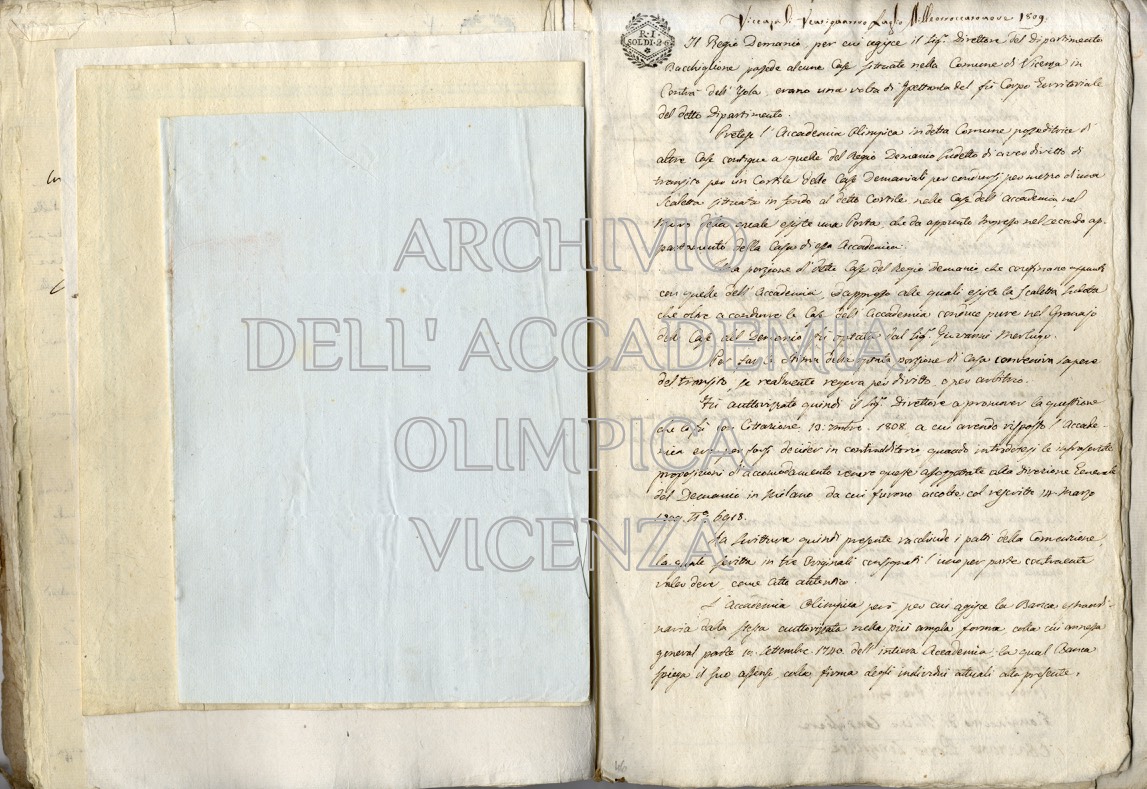 Vicenza li Luglio Milleottocentonove 1809.
R. I.
SOLDI. 2. 6
Il Regio Demanio, per cui agisce il Sig.r Direttore del Dipartimento
Bacchiglione possede alcune Case situate nella Comune di Vicenza in
Contrà dell' Isola, erano una volta di spettanza del fù Corpo Territoriale
del detto Dipartimento.
Pretese l' Accademia Olimpica in detta Comune posseditrice di
altre Case contigue a quelle del Regio Demanio sudetto di aver diritto di
transito per un Cortile delle Case Demaniali per condursi per mezzo di una
Scaletta situata in fondo al detto Cortile nelle Case dell' Accademia, nel
muro della quale esiste una Porta, che da appunto Ingresso nel secondo ap-
partamento della Casa di essa Accademia.
Una porzione di dette Case del Regio Demanio, che confinano appunto
con quelle dell' Accademia, ed appresso alle quali esiste la Scaletta sudetta
che oltre a condurre le Case dell' Accademia conduce pure nel Granajo
delle Case del Demanio fù optata dal Sig.r Giovanni
Per far la stima della optata porzione di Casa conveniva sapere
del transito, se realmente regeva per diritto, o per arbitrio.
Fù auttorizzato quindi il Sig.r Direttore a promover la questione
che la fù con Cittazione 1808 a cui avendo risposto l' Accade-
mia era per farsi decider in contradittorio quando introdottesi le infrascritte
proposizioni d' accomodamento vennero queste assoggettate alla Direzione Generale
del Demanio in Milano da cui furono accolte col rescritto 14 Marzo
1809 N.o 6918.
La Scrittura quindi presente racchiude i patti della Convenzione,
la quale scritta in tre Originali consegnati l' uno per parte contraente
valer deve come Atto autentico.
L' Accademia Olimpica però per cui agisce la Banca ordi-
naria dalla stessa auttorizzata nella più ampla forma colla quì annessa
general parte 10 Settembre 1740 dell' intiera Accademia, la qual Banca
spiega il suo assenso colla firma degli individui attuali alla presente,
46
ARCHIVIO
DELL' ACCADEMIA
OLIMPICA
VICENZA